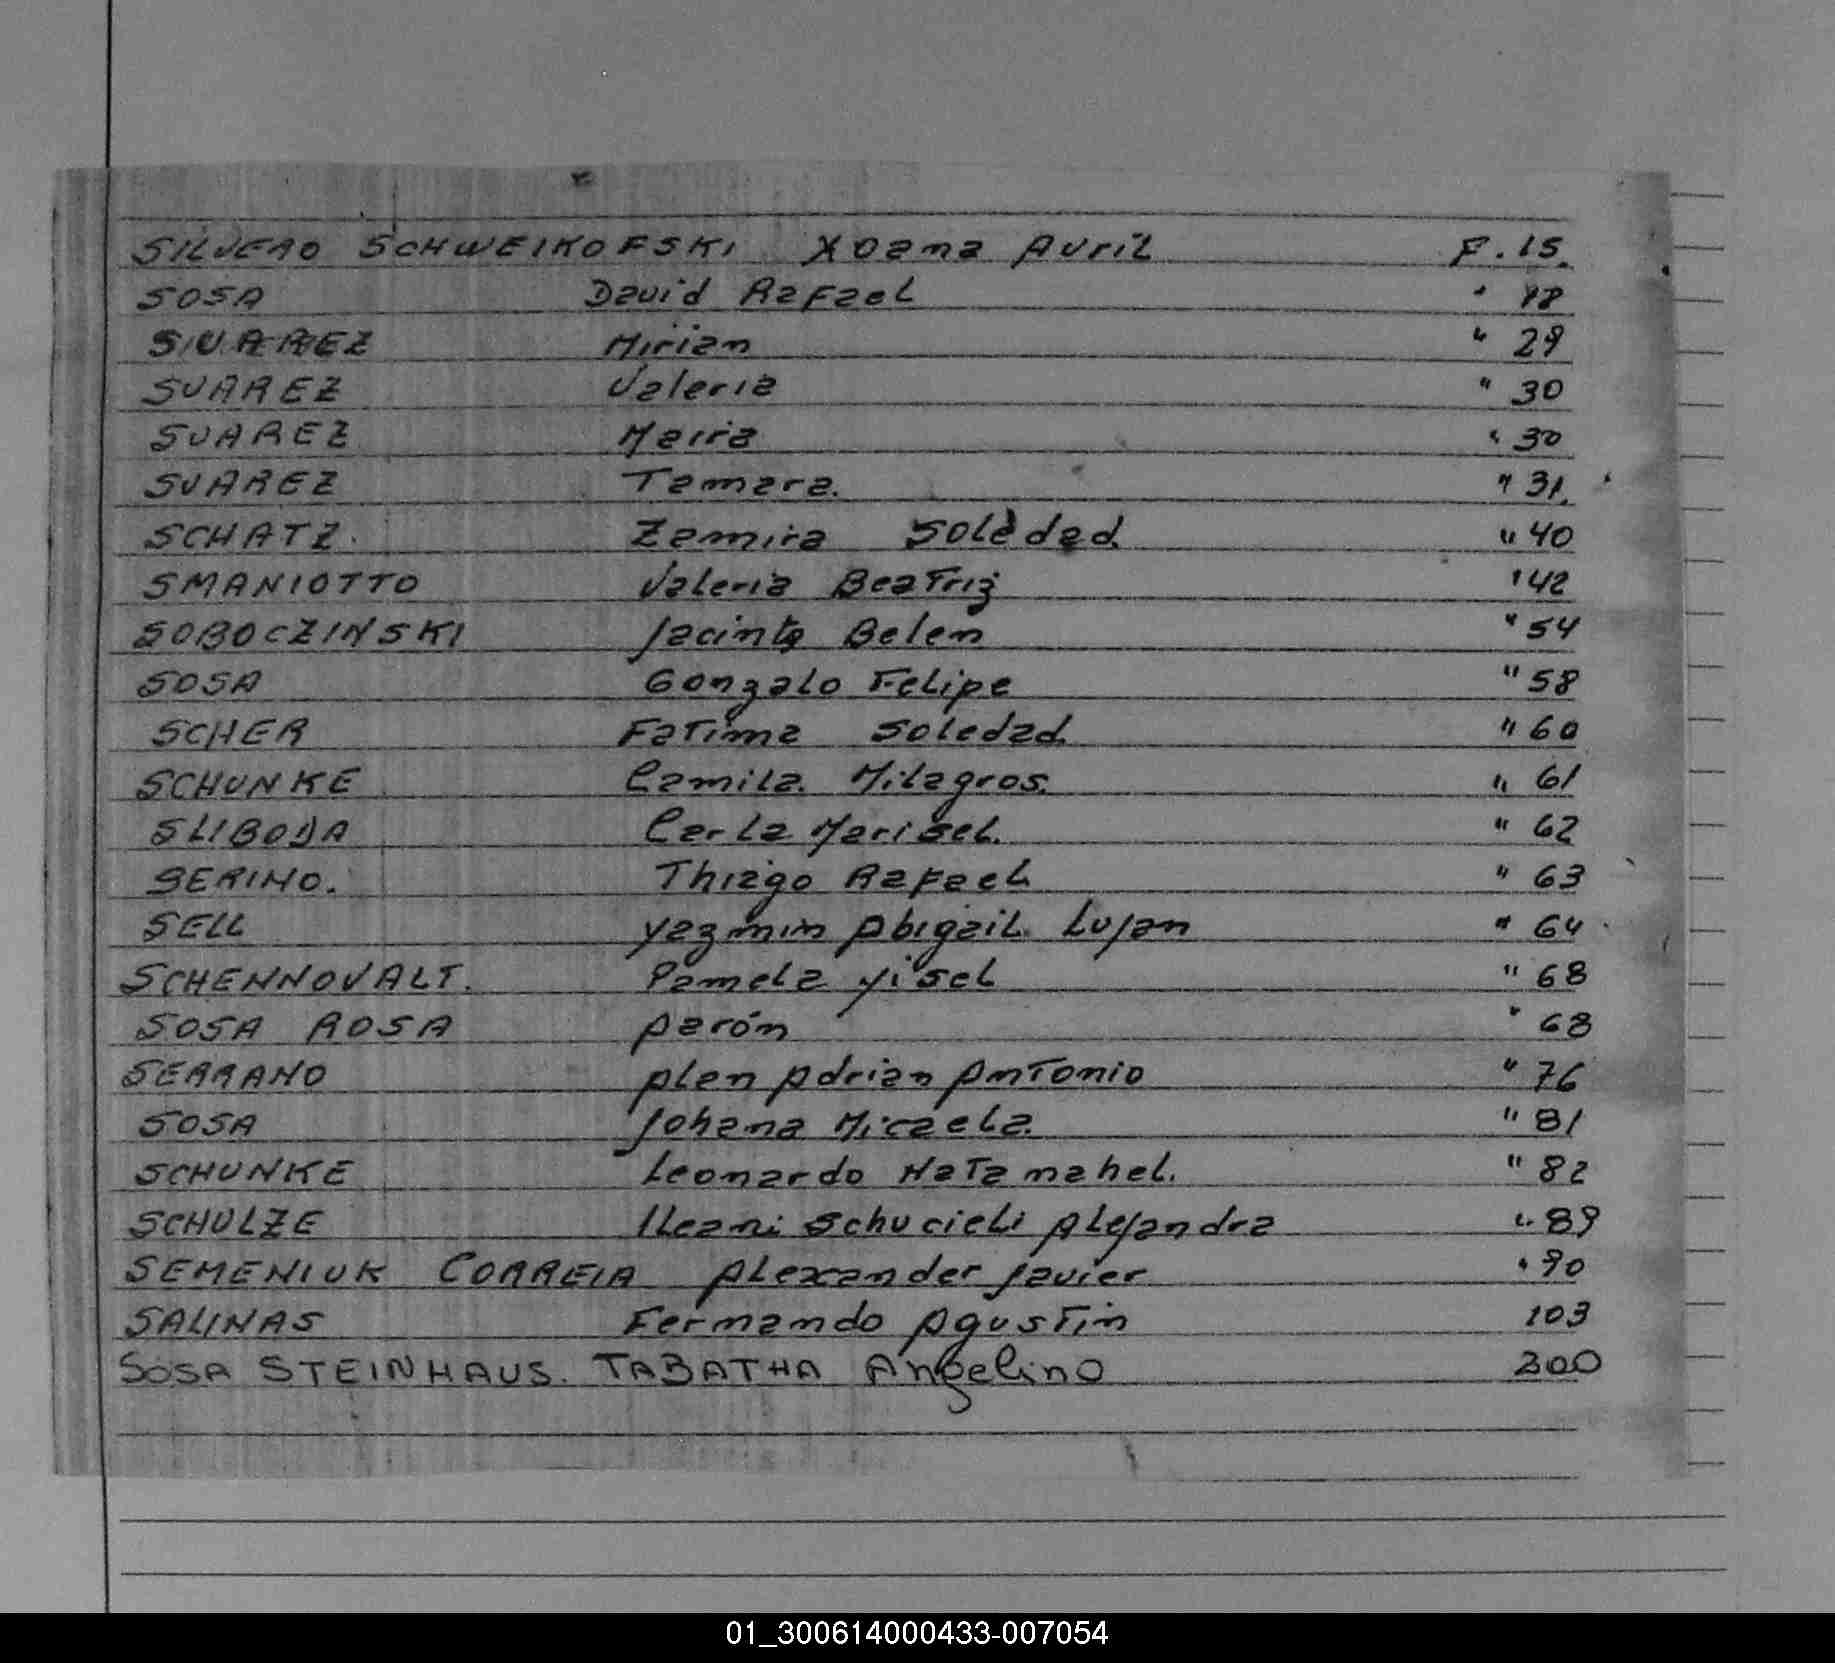 SILVERO SCHWEIKOFSKI Xoana Avril F. 15.
SOSA David Rafael " 18
SUAREZ Mirian " 29
SUAREZ Valeria " 30
SUAREZ Maira " 30
SUAREZ Tamara. " 31.
SCHATZ. Zamira Soledad. " 40
SMANIOTTO Valeria Beatriz " 42
SOBOCZINSKI Jacinta Belen " 54
SOSA Gonzalo Felipe " 58
SCHER Fatima Soledad. " 60
SCHUNKE Camila. Milagros. " 61
SLIBODA Carla Marisel. " 62
SERINO. Thiago Rafael " 63
SELL Yazmin Abigail. Lujan " 64
SCHENNOVALT. Pamela Yisel " 68
SOSA ROSA Aarón " 68
SERRANO Alan Adrian Antonio " 76
SOSA Johana Micaela. " 81
SCHUNKE Leonardo Natanahel. " 82
SCHULZE Ileani Schucieli Alejandra " 89
SEMENIUK CORREIA Alexander Javier " 90
SALINAS Fernando Agustin 103
SOSA STEINHAUS. TABATHA Angelino 200
01_300614000433-007054